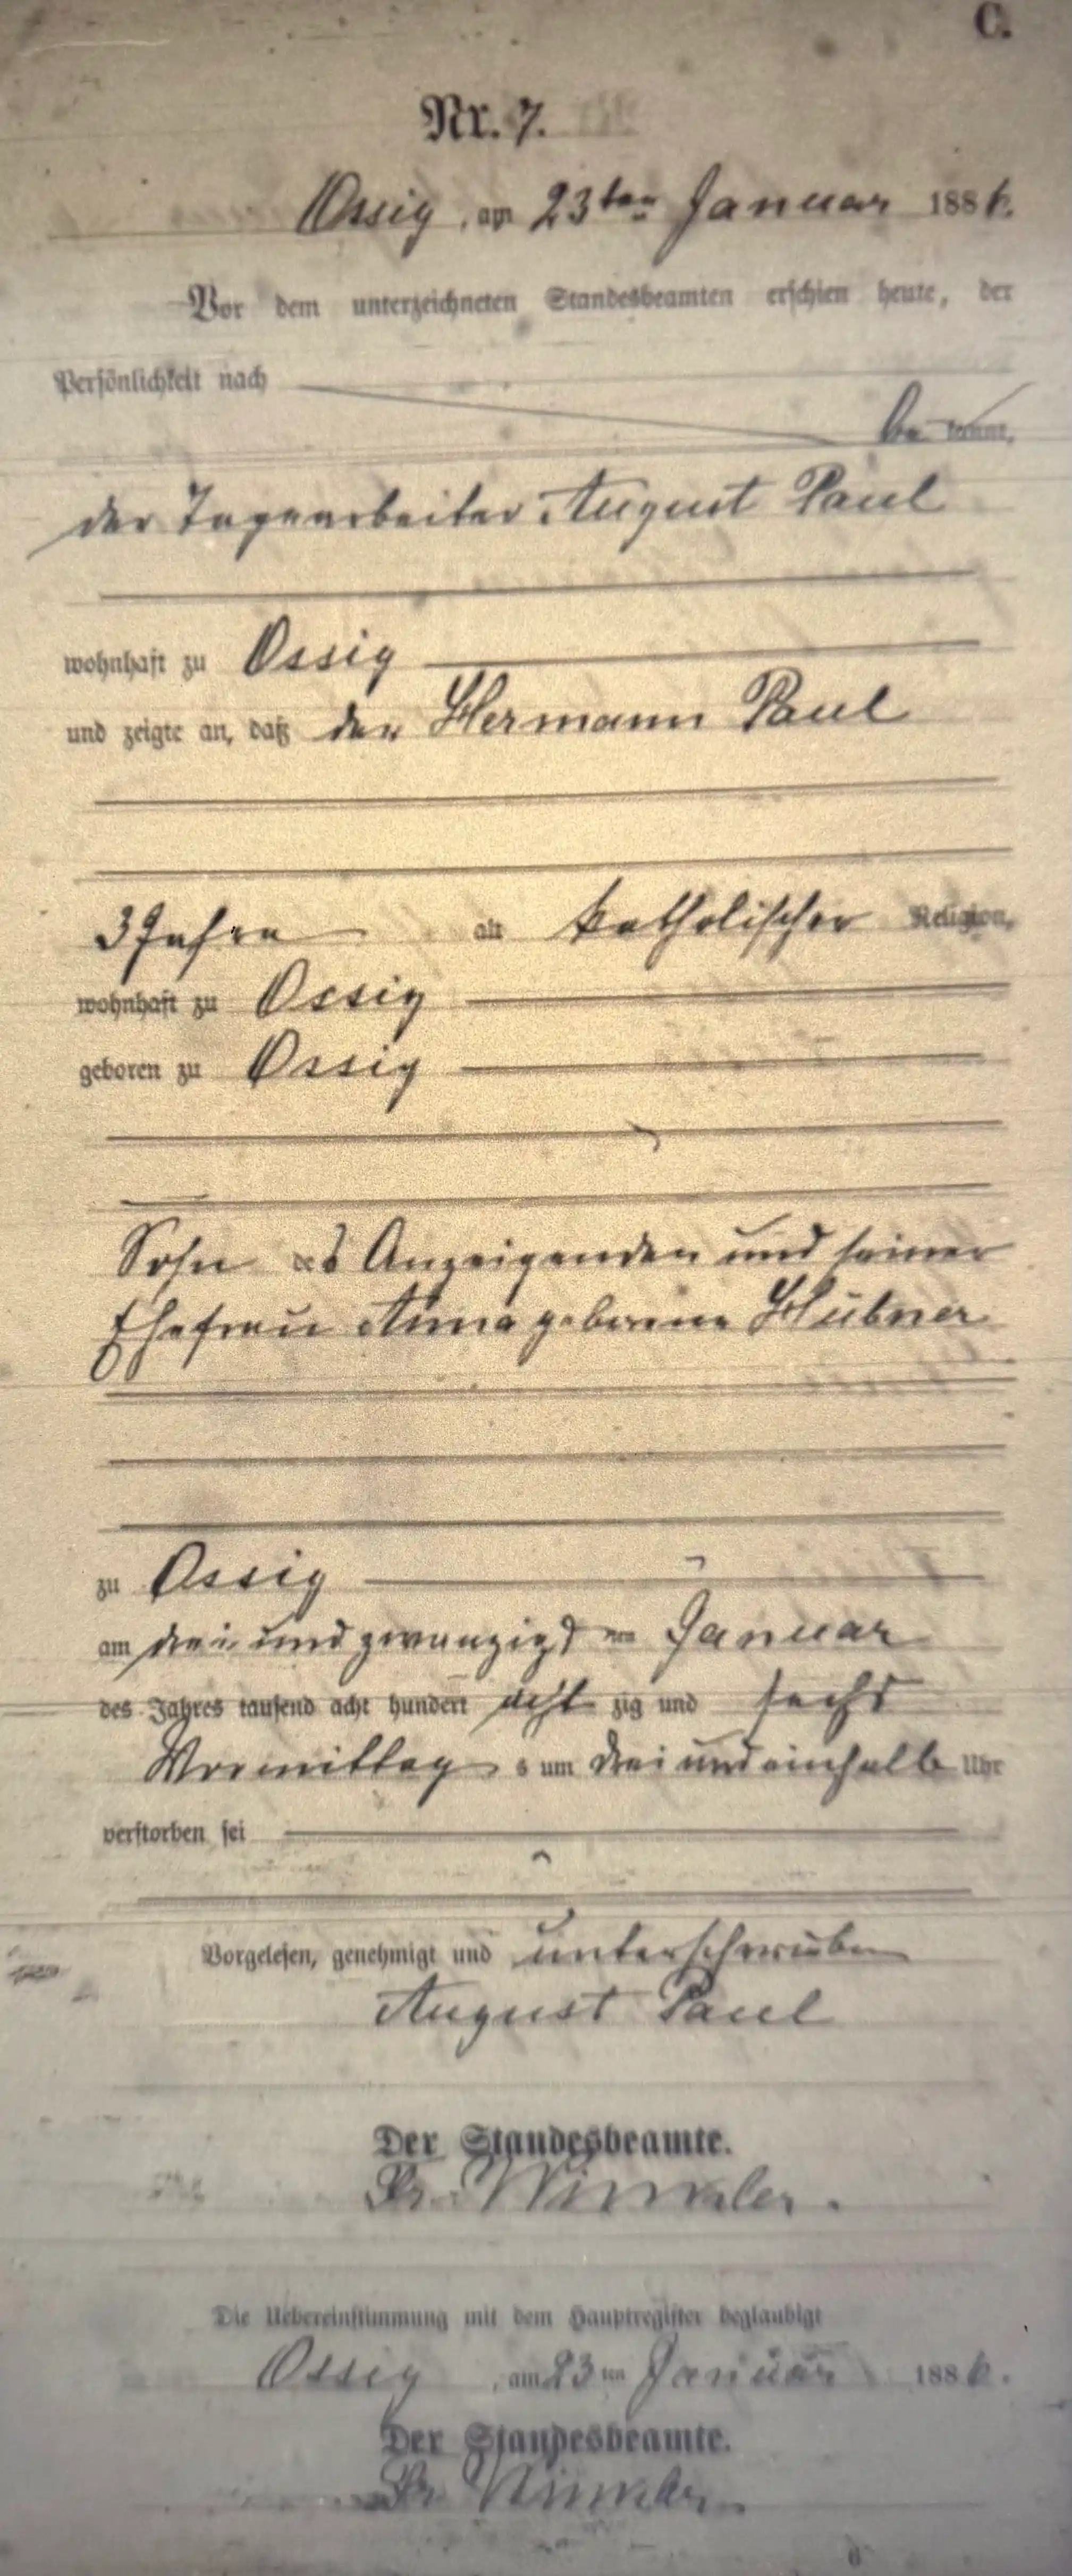 C.
Nr. 7.
Ossig, am 23ten Januar 1886.
Vor dem unterzeichneten Standesbeamten erschien heute, der
Persönlichkeit nach
be kannt,
der Tagearbeiter August Paul
wohnhaft zu Ossig
und zeigte an, daß der Hermann Paul
3 Jahre alt katholischer Religion,
wohnhaft zu Ossig
geboren zu Ossig
Sohn des Anzeigenden und seiner
Ehefrau Anna geborene Hübner
zu Ossig
am drei und zwanzigsten Januar
des Jahres tausend acht hundert acht zig und sechs
Vormittag s um drei und einhalb Uhr
verstorben sei
Vorgelesen, genehmigt und unterschrieben
August Paul
Der Standesbeamte.
Winkler.
Die Uebereinstimmung mit dem Hauptregister beglaubigt
Ossig, am 23ten Januar 1886.
Der Standesbeamte.
Winkler.